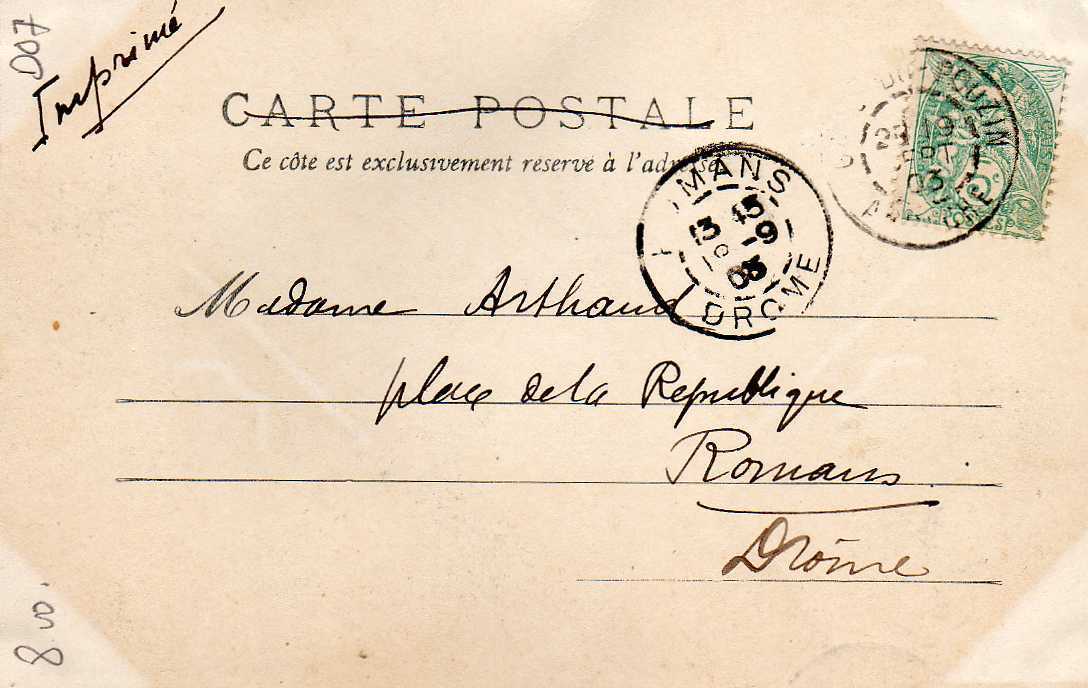 700
Imprimé
CARTE POSTALE
Ce côte est exclusivement reservé à l'adresse
DU POUZIN
9
03
5c
MANS
13 15
-9
03
DROME
Madame Arthaud
place de la Republique
Romans
Drôme
8